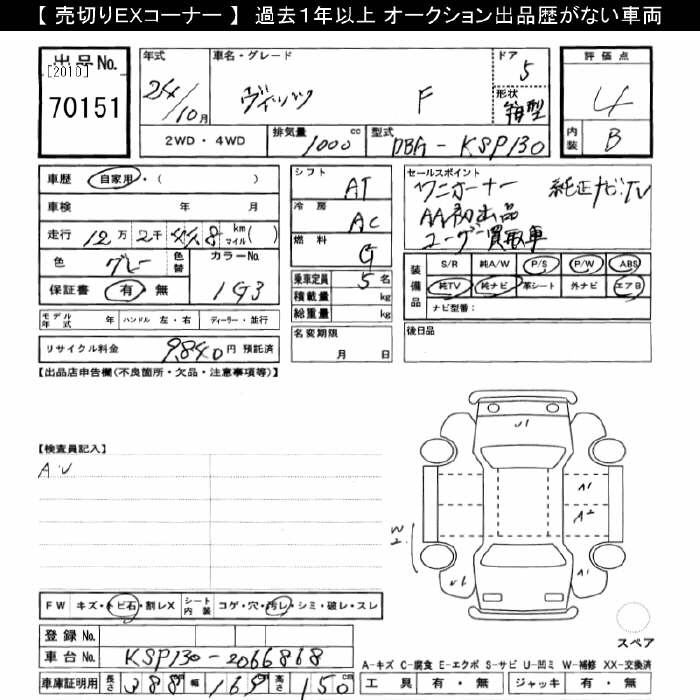 【 売切りEXコーナー 】 過去1年以上 オークション出品歴がない車両
出品No.
[2010]
70151
年式
24/10月
車名・グレード
ヴィッツ F
ドア
5
形状
箱型
評価点
4
内装
B
2WD・4WD
排気量
1000 cc
型式
DBA-KSP130
車歴 自家用・( )
車検 年 月
走行 12万 2千 km マイル( )
色 グレー 色替 カラーNo. 1G3
保証書 有・無
モデル年式 年 ハンドル 左・右 ディーラー・並行
リサイクル料金 9,840円 預託済
シフト AT
冷房 AC
燃料 G
乗車定員 5名
積載量 kg
総重量 kg
名変期限
月 日
セールスポイント
ワンオーナー 純正ナビTV
AA初出品
ユーザー買取車
装備品
S/R 純A/W P/S P/W ABS
純TV 純ナビ 革シート 外ナビ エアB
ナビ型番:
後日品
【出品店申告欄(不良箇所・欠品・注意事項等)】
【検査員記入】
A・U
U1
A1
A2
W2
U1
A1
スペア
FW キズ・トビ石・割レX シート内装 コゲ・穴・汚レ・シミ・破レ・スレ
登録No.
車台No. KSP130-2066868
車庫証明用 長さ 388 cm 幅 169 cm 高さ 150 cm
A-キズ C-腐食 E-エクボ S-サビ U-凹ミ W-補修 XX-交換済
工具 有・無 ジャッキ 有・無